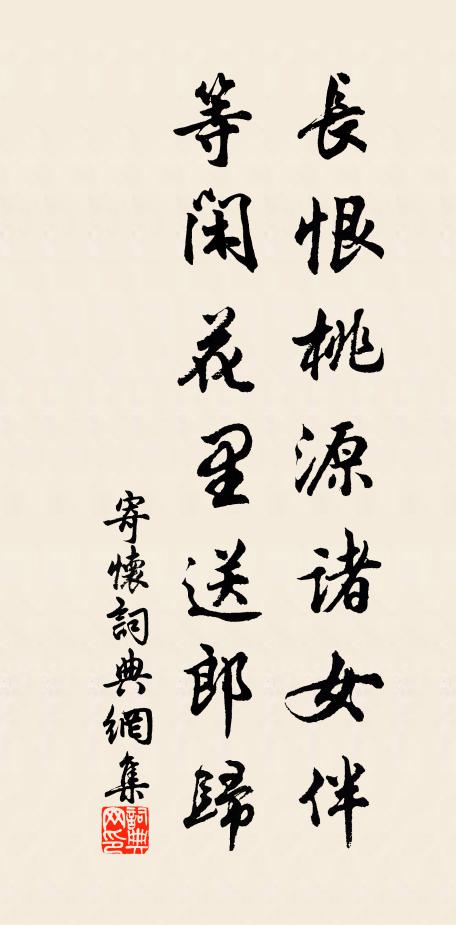 長恨桃源諸女伴
等閑花里送郎歸
寄懷詞典網集
詞典網印